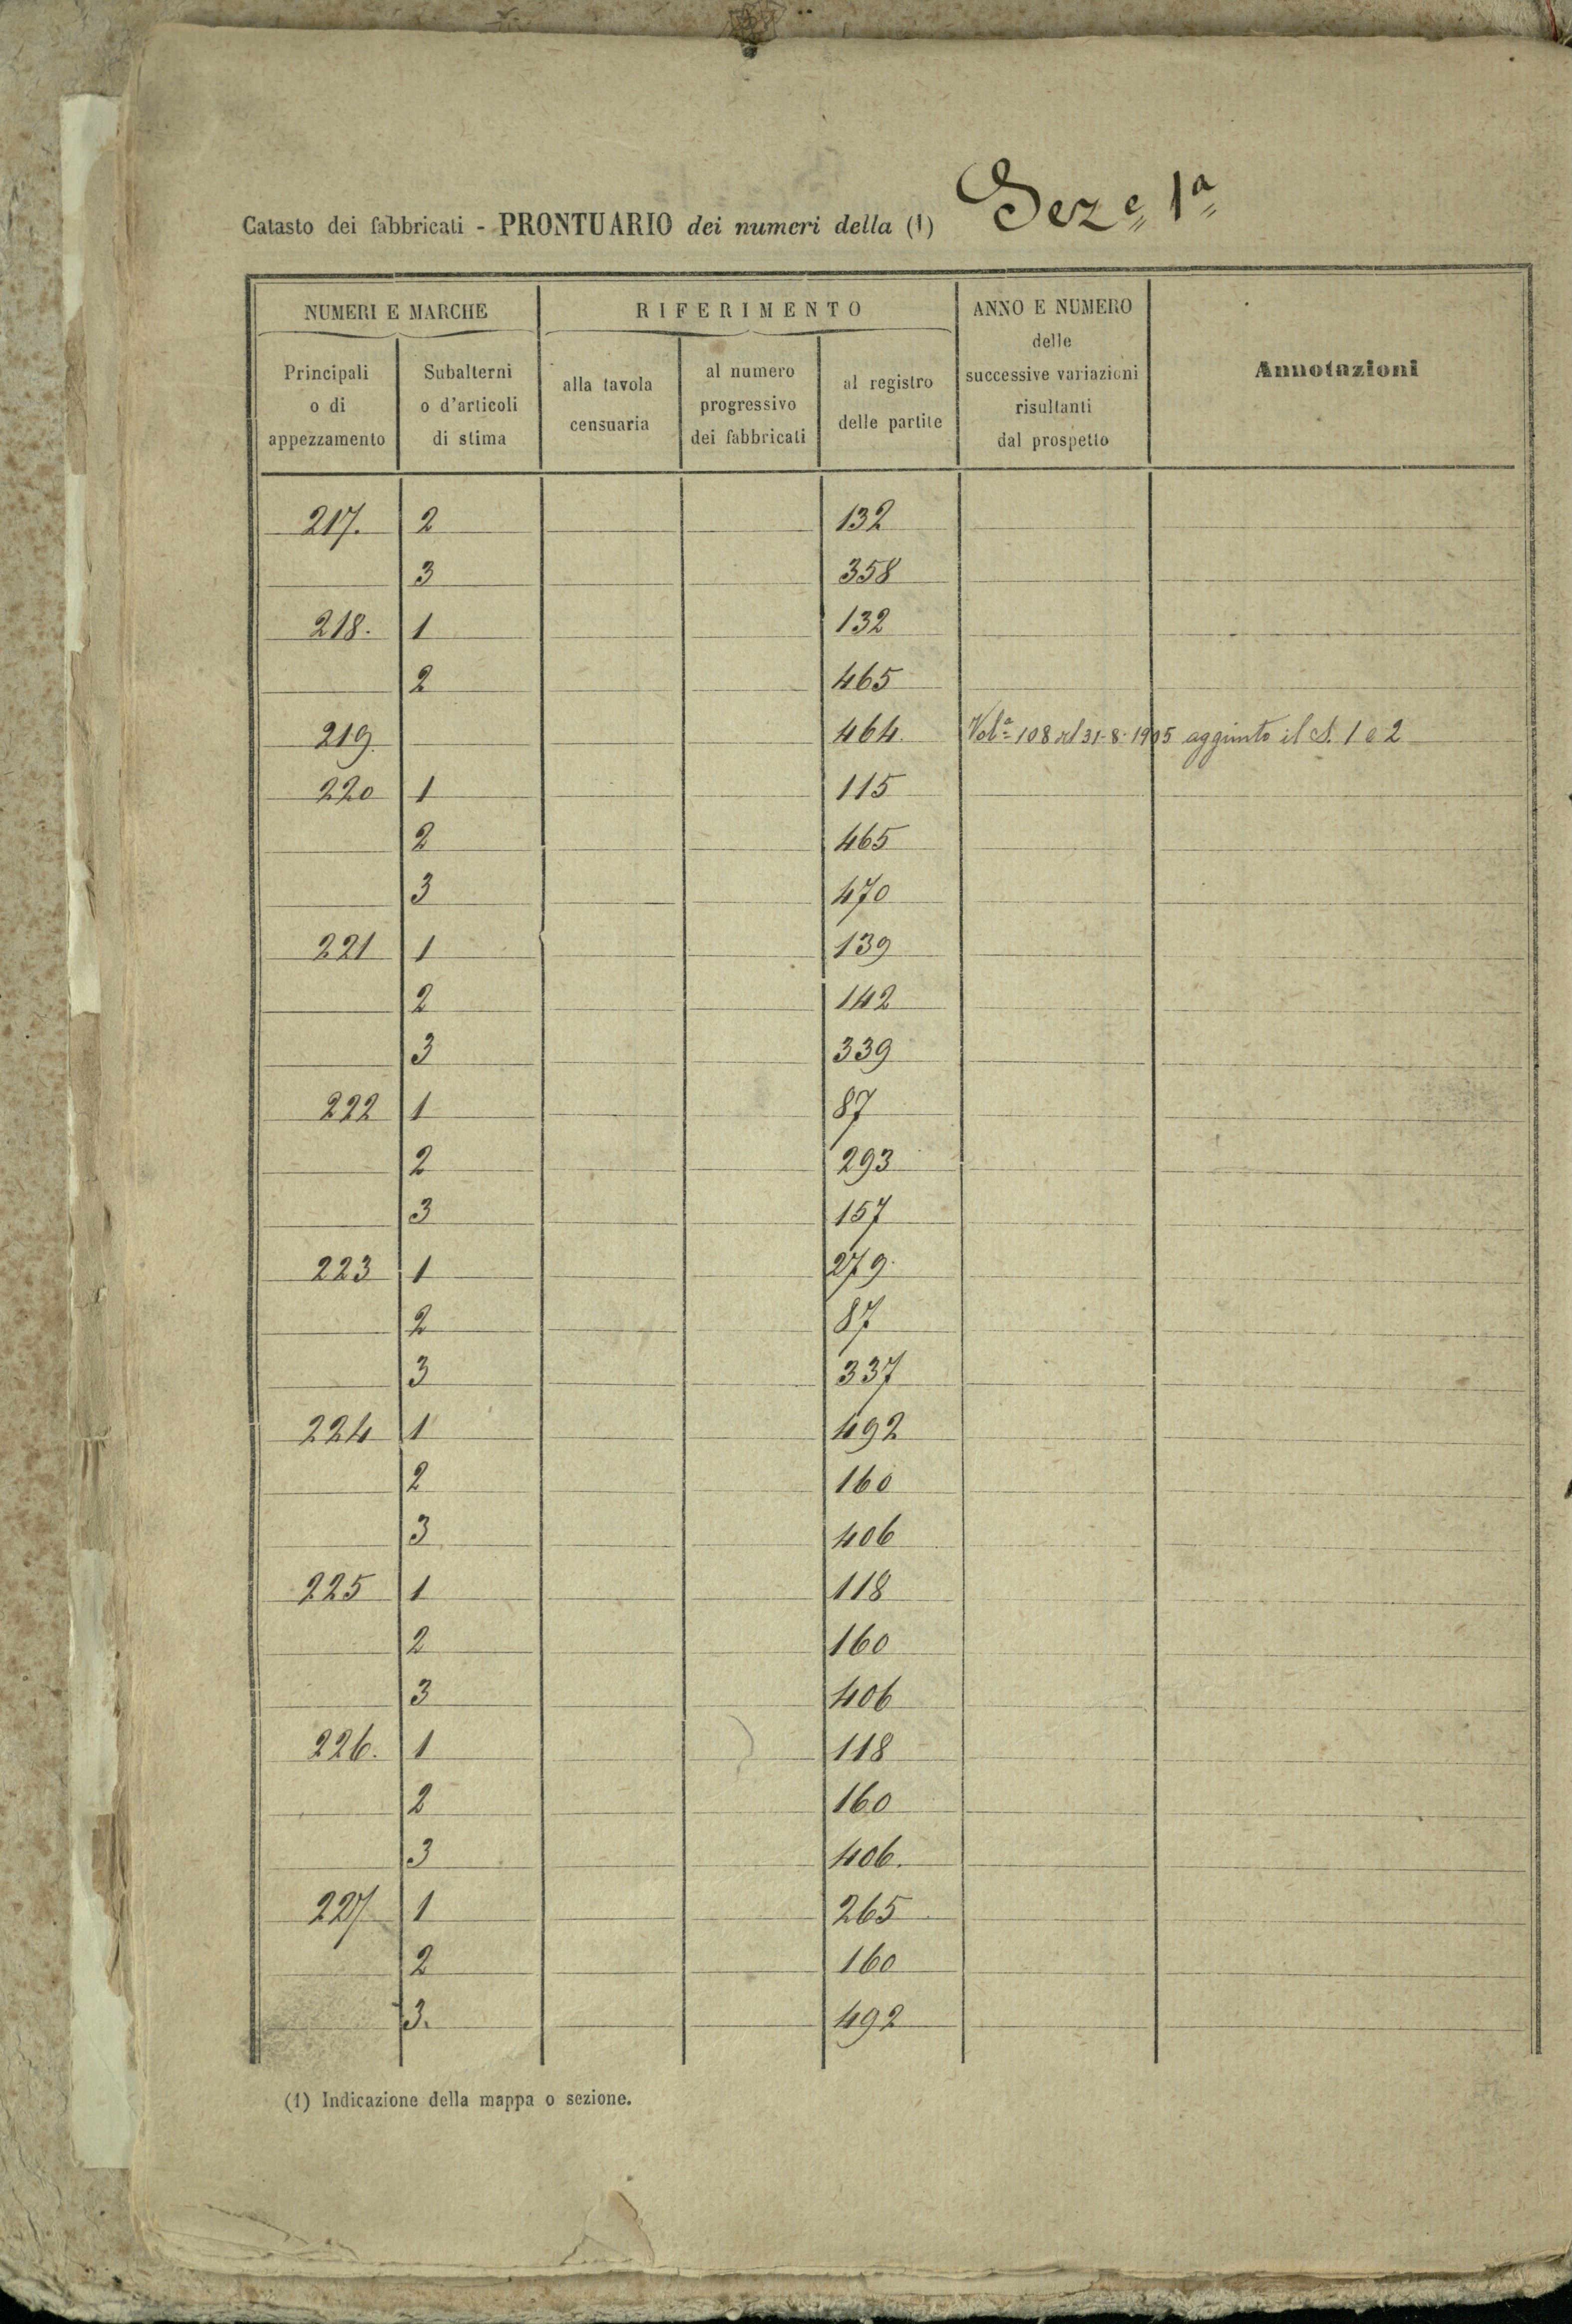 Catasto dei fabbricati - PRONTUARIO dei numeri della (1) Sez.e 1a
NUMERI E MARCHE
RIFERIMENTO
ANNO E NUMERO
delle
successive variazioni
risultanti
dal prospetto
Annotazioni
Principali
o di
appezzamento
Subalterni
o d'articoli
di stima
alla tavola
censuaria
al numero
progressivo
dei fabbricati
al registro
delle partite
217. 2 132
3 358
218. 1 132
2 465
219. 464. 108 31-8-1905 aggiunto il S. 1 e 2
220 1 115
2 465
3 470
221 1 139
2 142
3 339
222 1 87
2 293
3 157
223 1 279.
2 87
3 337
224 1 492
2 160
3 406
225 1 118
2 160
3 406
226. 1 118
2 160
3 406.
227 1 265
2 160
3. 492
(1) Indicazione della mappa o sezione.